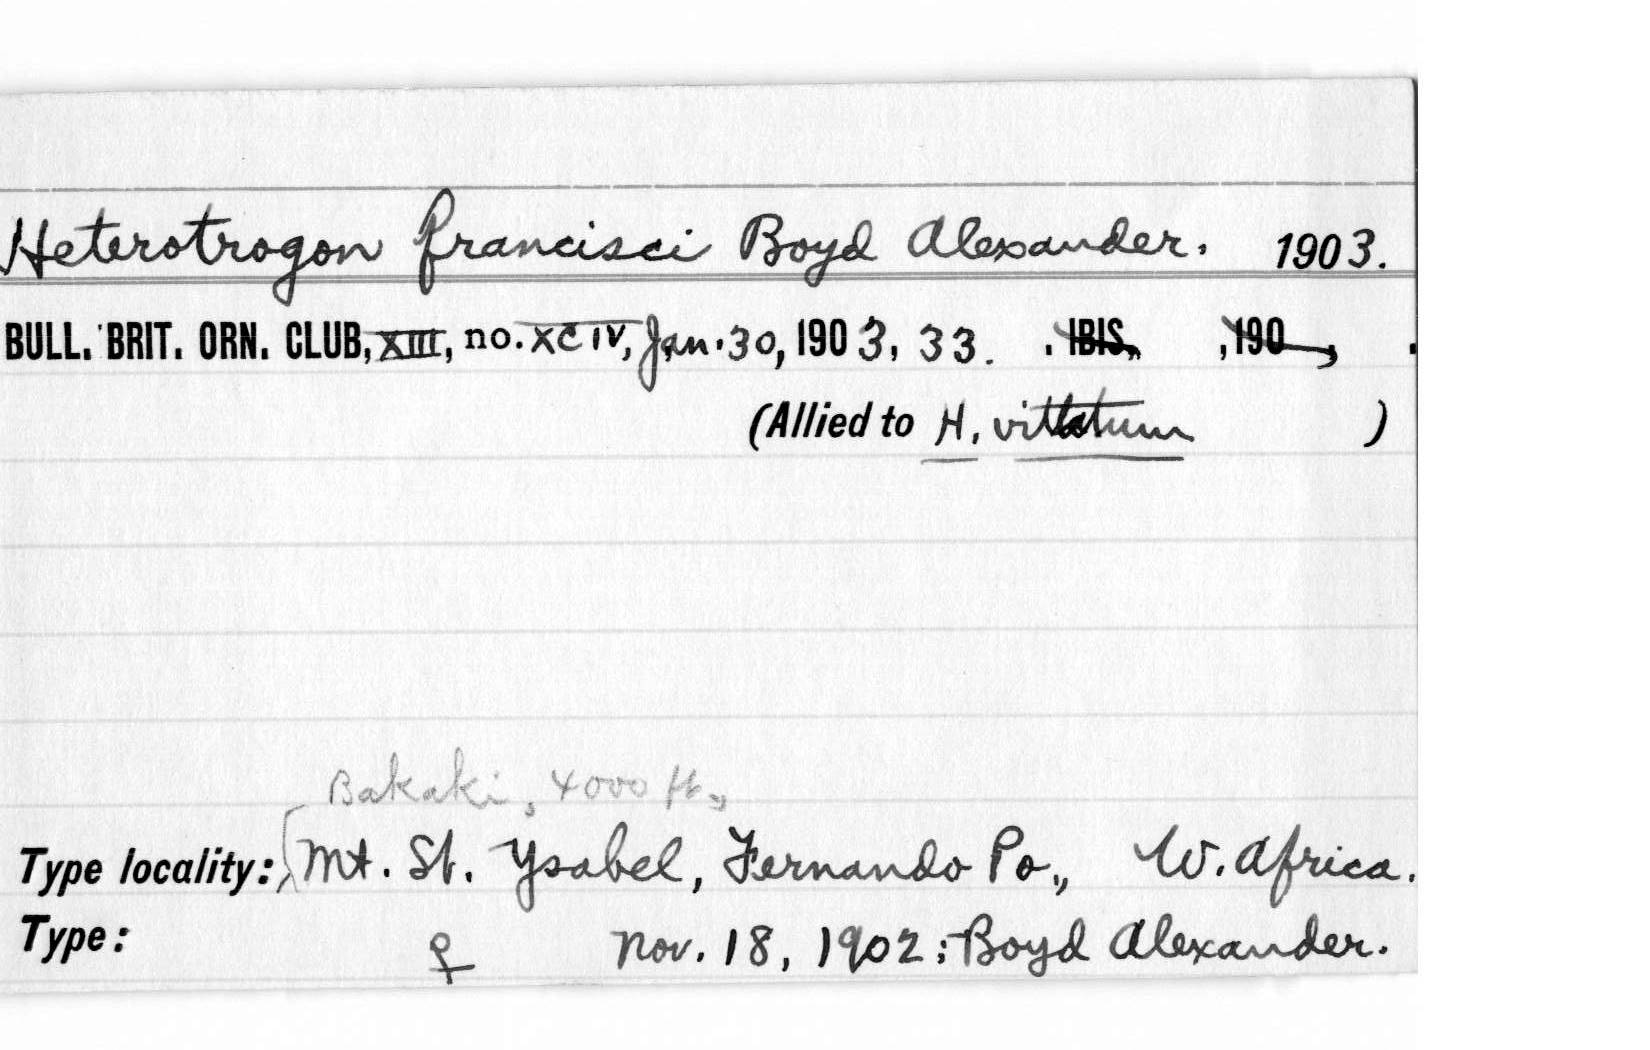 Heterotrogon francisci Boyd Alexander. 1903.
BULL. BRIT. ORN. CLUB, XIII, no. XCIV, Jan. 30, 1903, 33. . IBIS, ,190 , .
(Allied to H. vittatum )
Bakaki, 4000 ft.,
Type locality: Mt. St. Ysabel, Fernando Po., W. Africa.
Type: ♀ Nov. 18, 1902; Boyd Alexander.